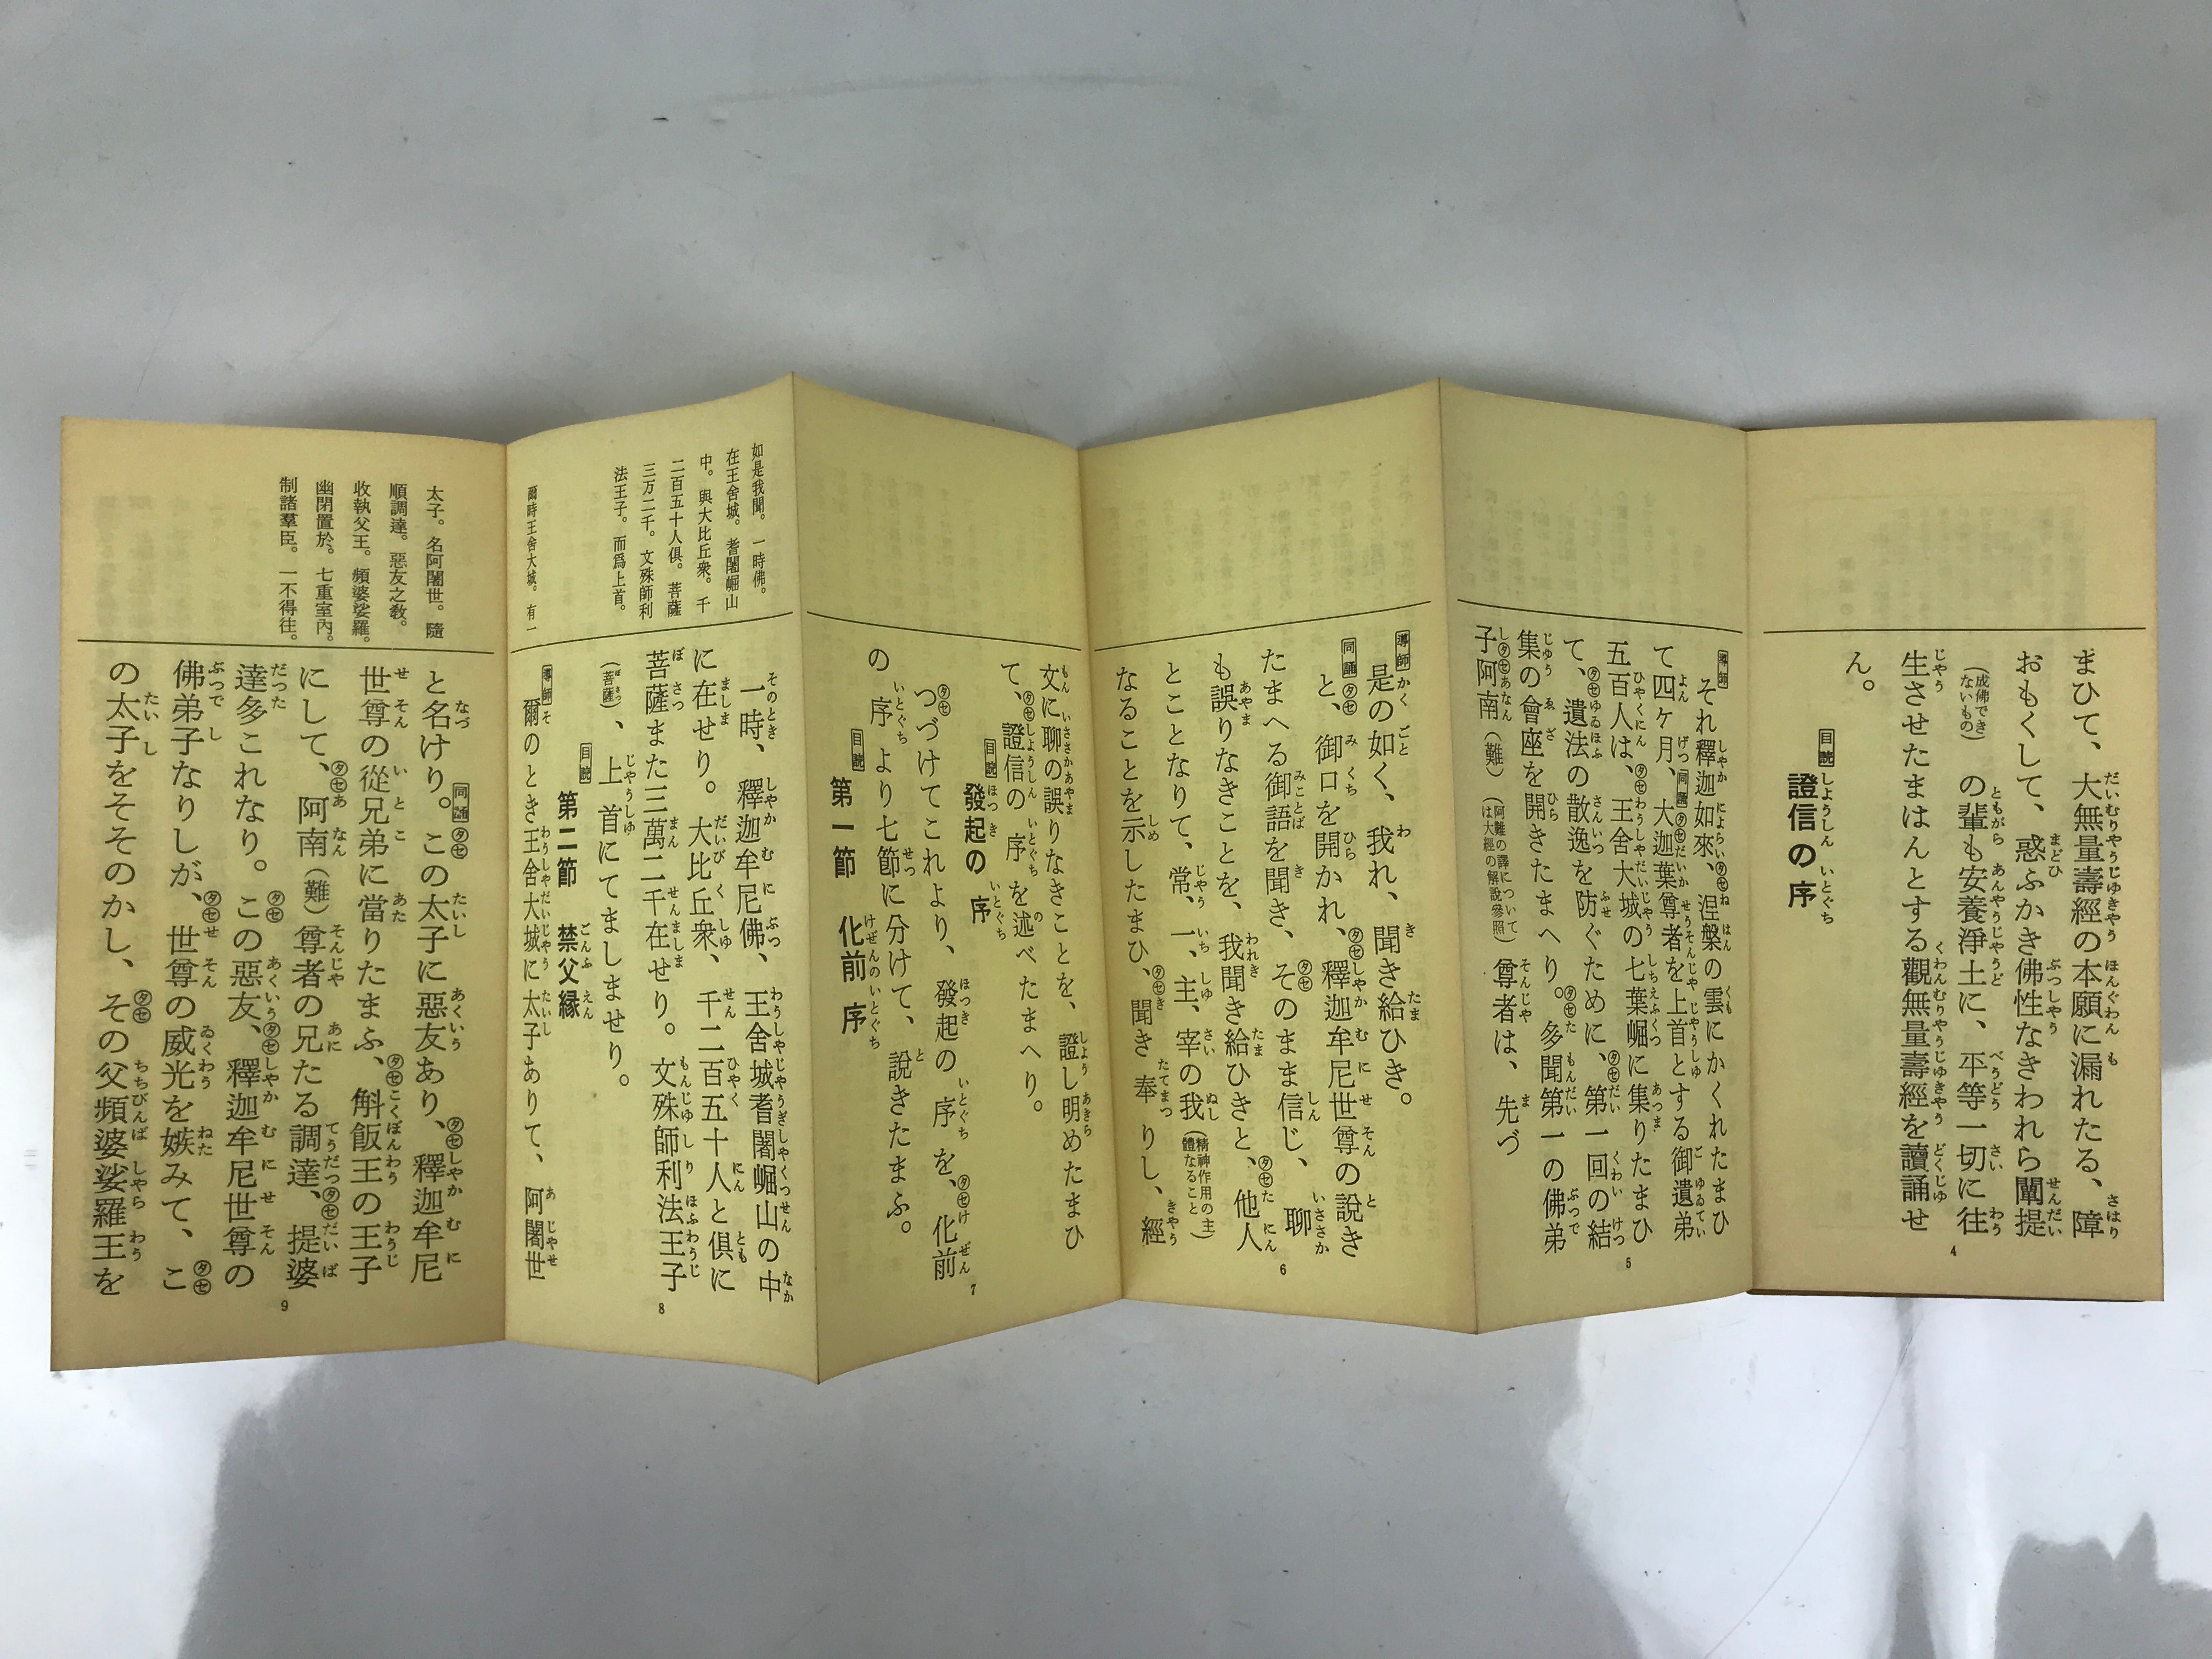 まひて、大無量壽經の本願に漏れたる、障
おもくして、惑ふかき佛性なきわれら闡提
(成佛できないもの)の輩も安養淨土に、平等一切に往
生させたまはんとする觀無量壽經を讀誦せ
ん。
目読 證信の序
4
導師 それ釋迦如來、㋟㋝涅槃の雲にかくれたまひ
て四ケ月、同誦㋟㋝大迦葉尊者を上首とする御遺弟
五百人は、㋟㋝王舍大城の七葉崛に集りたまひ
て、㋟㋝遺法の散逸を防ぐために、㋟㋝第一回の結
集の會座を開きたまへり。㋟㋝多聞第一の佛弟
子㋟㋝阿南(難)(阿難の譯については大經の解說參照)尊者は、先づ
5
導師 是の如く、我れ、聞き給ひき。
同誦 と、㋟㋝御口を開かれ、㋟㋝釋迦牟尼世尊の說き
たまへる御語を聞き、㋟㋝そのまま信じ、聊
も誤りなきことを、我聞き給ひきと、㋟㋝他人
とことなりて、常、一、主、宰の我(精神作用の主體なること)
なることを示したまひ、㋟㋝聞き奉りし、經
6
文に聊の誤りなきことを、證し明めたまひ
て、㋟㋝證信の序を述べたまへり。
目読 發起の序
㋟㋝つづけてこれより、發起の序を、㋟㋝化前
の序より七節に分けて、說きたまふ。
目読 第一節 化前序
7
如是我聞。一時佛。
在王舍城。耆闍崛山
中。與大比丘衆。千
二百五十人俱。菩薩
三万二千。文殊師利
法王子。而爲上首。
爾時王舍大城。有一
一時、釋迦牟尼佛、王舍城耆闍崛山の中
に在せり。大比丘衆、千二百五十人と俱に
菩薩また三萬二千在せり。文殊師利法王子
(菩薩)、上首にてましませり。
目読 第二節 禁父縁
導師 爾のとき王舍大城に太子ありて、阿闍世
8
太子。名阿闍世。隨
順調達。惡友之敎。
收執父王。頻婆娑羅。
幽閉置於。七重室內。
制諸羣臣。一不得往。
と名けり。同誦㋟㋝この太子に惡友あり、㋟㋝釋迦牟尼
世尊の從兄弟に當りたまふ、㋟㋝斛飯王の王子
にして、㋟㋝阿南(難)尊者の兄たる調達、㋟㋝提婆
達多これなり。㋟㋝この惡友、㋟㋝釋迦牟尼世尊の
佛弟子なりしが、㋟㋝世尊の威光を嫉みて、㋟㋝こ
の太子をそそのかし、㋟㋝その父頻婆娑羅王を
9